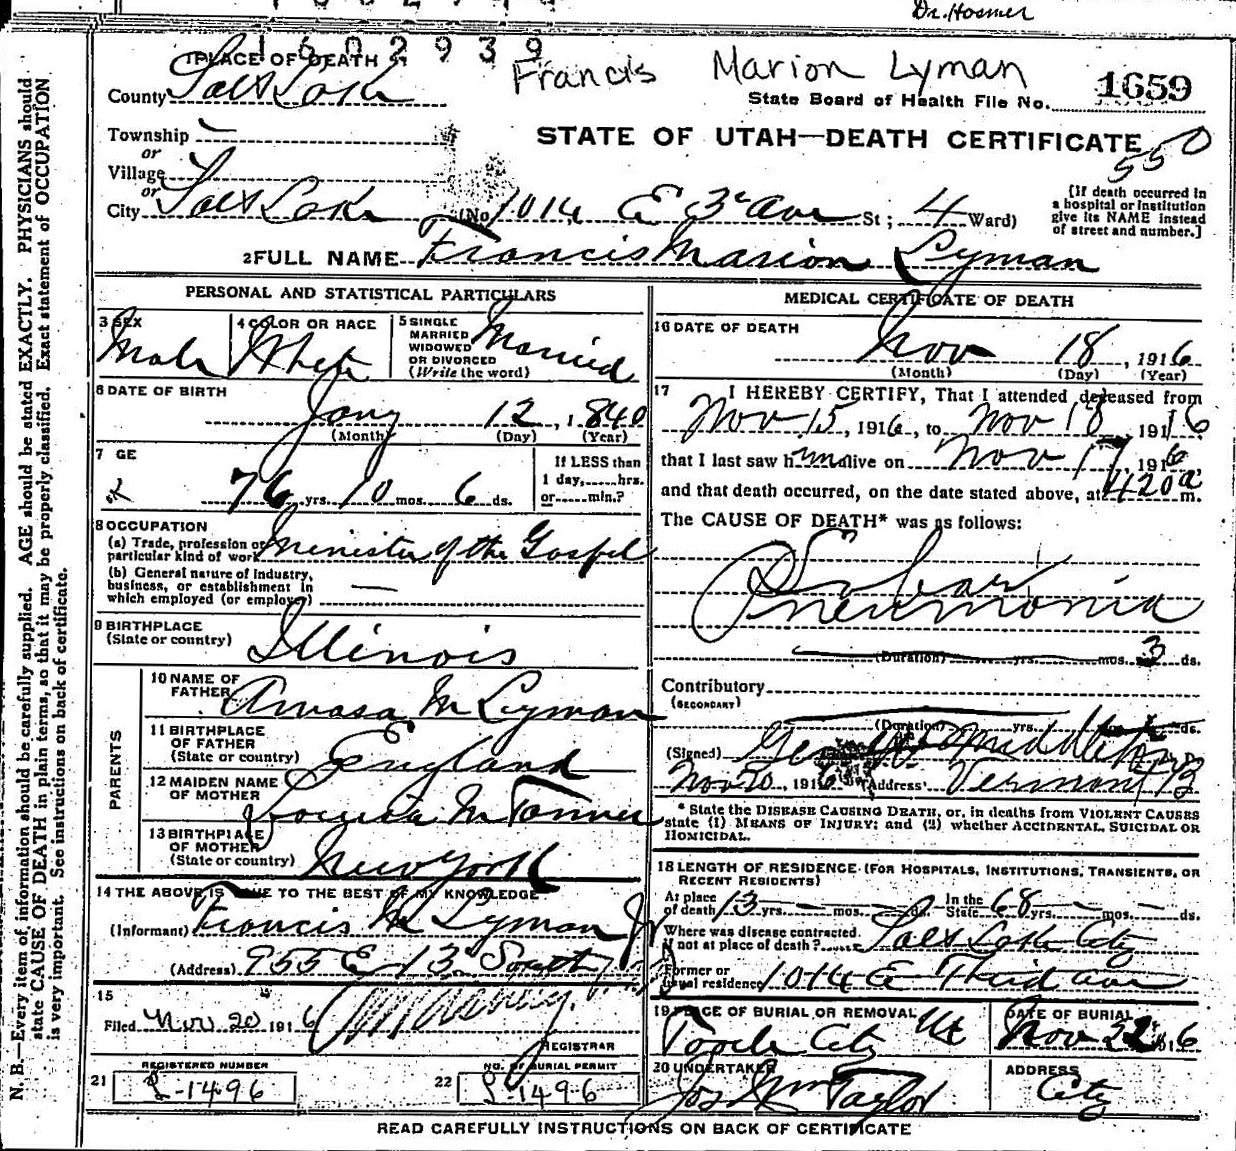 Dr. Hosmer
1602939
Francis Marion Lyman
1 PLACE OF DEATH
County Salt Lake
State Board of Health File No. 1659
STATE OF UTAH—DEATH CERTIFICATE
550
Township
or
Village
or
City Salt Lake (No. 1014 E 3rd Ave St; 4 Ward)
[If death occurred in
a hospital or institution
give its NAME instead
of street and number.]
2 FULL NAME Francis Marion Lyman
PERSONAL AND STATISTICAL PARTICULARS
3 SEX
Male
4 COLOR OR RACE
White
5 SINGLE
MARRIED
WIDOWED
OR DIVORCED
(Write the word)
Married
6 DATE OF BIRTH
Jany 12, 1840
(Month) (Day) (Year)
7 GE
76 yrs. 10 mos. 6 ds.
If LESS than
1 day,......hrs.
or......min.?
8 OCCUPATION
(a) Trade, profession or
particular kind of work Minister of the Gospel
(b) General nature of industry,
business, or establishment in
which employed (or employer)
9 BIRTHPLACE
(State or country) Illinois
PARENTS
10 NAME OF
FATHER Amasa M Lyman
11 BIRTHPLACE
OF FATHER
(State or country) England
12 MAIDEN NAME
OF MOTHER Louisa M Tanner
13 BIRTHPLACE
OF MOTHER
(State or country) New York
14 THE ABOVE IS TRUE TO THE BEST OF MY KNOWLEDGE
(Informant) Francis M Lyman Jr
(Address) 955 E 13th South
15
Filed Nov 20 1916
REGISTRAR
REGISTERED NUMBER
21 S-1496
NO. OF BURIAL PERMIT
22 S-1496
MEDICAL CERTIFICATE OF DEATH
16 DATE OF DEATH
Nov 18, 1916
(Month) (Day) (Year)
17 I HEREBY CERTIFY, That I attended deceased from
Nov 15, 1916, to Nov 18 1916
that I last saw him alive on Nov 17, 1916,
and that death occurred, on the date stated above, at 420 a m.
The CAUSE OF DEATH* was as follows:
Lobar
Pneumonia
(Duration) yrs. mos. 3 ds.
Contributory
(SECONDARY)
(Duration) yrs. ds.
(Signed) Geo W Middleton
Nov 20, 1916 (Address) Vermont B
* State the DISEASE CAUSING DEATH, or, in deaths from VIOLENT CAUSES
state (1) MEANS OF INJURY; and (2) whether ACCIDENTAL, SUICIDAL OR
HOMICIDAL.
18 LENGTH OF RESIDENCE (FOR HOSPITALS, INSTITUTIONS, TRANSIENTS, OR
RECENT RESIDENTS)
At place
of death 13 yrs. — mos. — ds. In the
State 68 yrs. — mos. — ds.
Where was disease contracted.
If not at place of death? Salt Lake City
Former or
usual residence 1014 E Third Ave
19 PLACE OF BURIAL OR REMOVAL
Tooele City Ut
DATE OF BURIAL
Nov 22 1916
20 UNDERTAKER
Jos Wm Taylor
ADDRESS
City
READ CAREFULLY INSTRUCTIONS ON BACK OF CERTIFICATE
N. B.—Every item of information should be carefully supplied. AGE should be stated EXACTLY. PHYSICIANS should
state CAUSE OF DEATH in plain terms, so that it may be properly classified. Exact statement of OCCUPATION
is very important. See instructions on back of certificate.